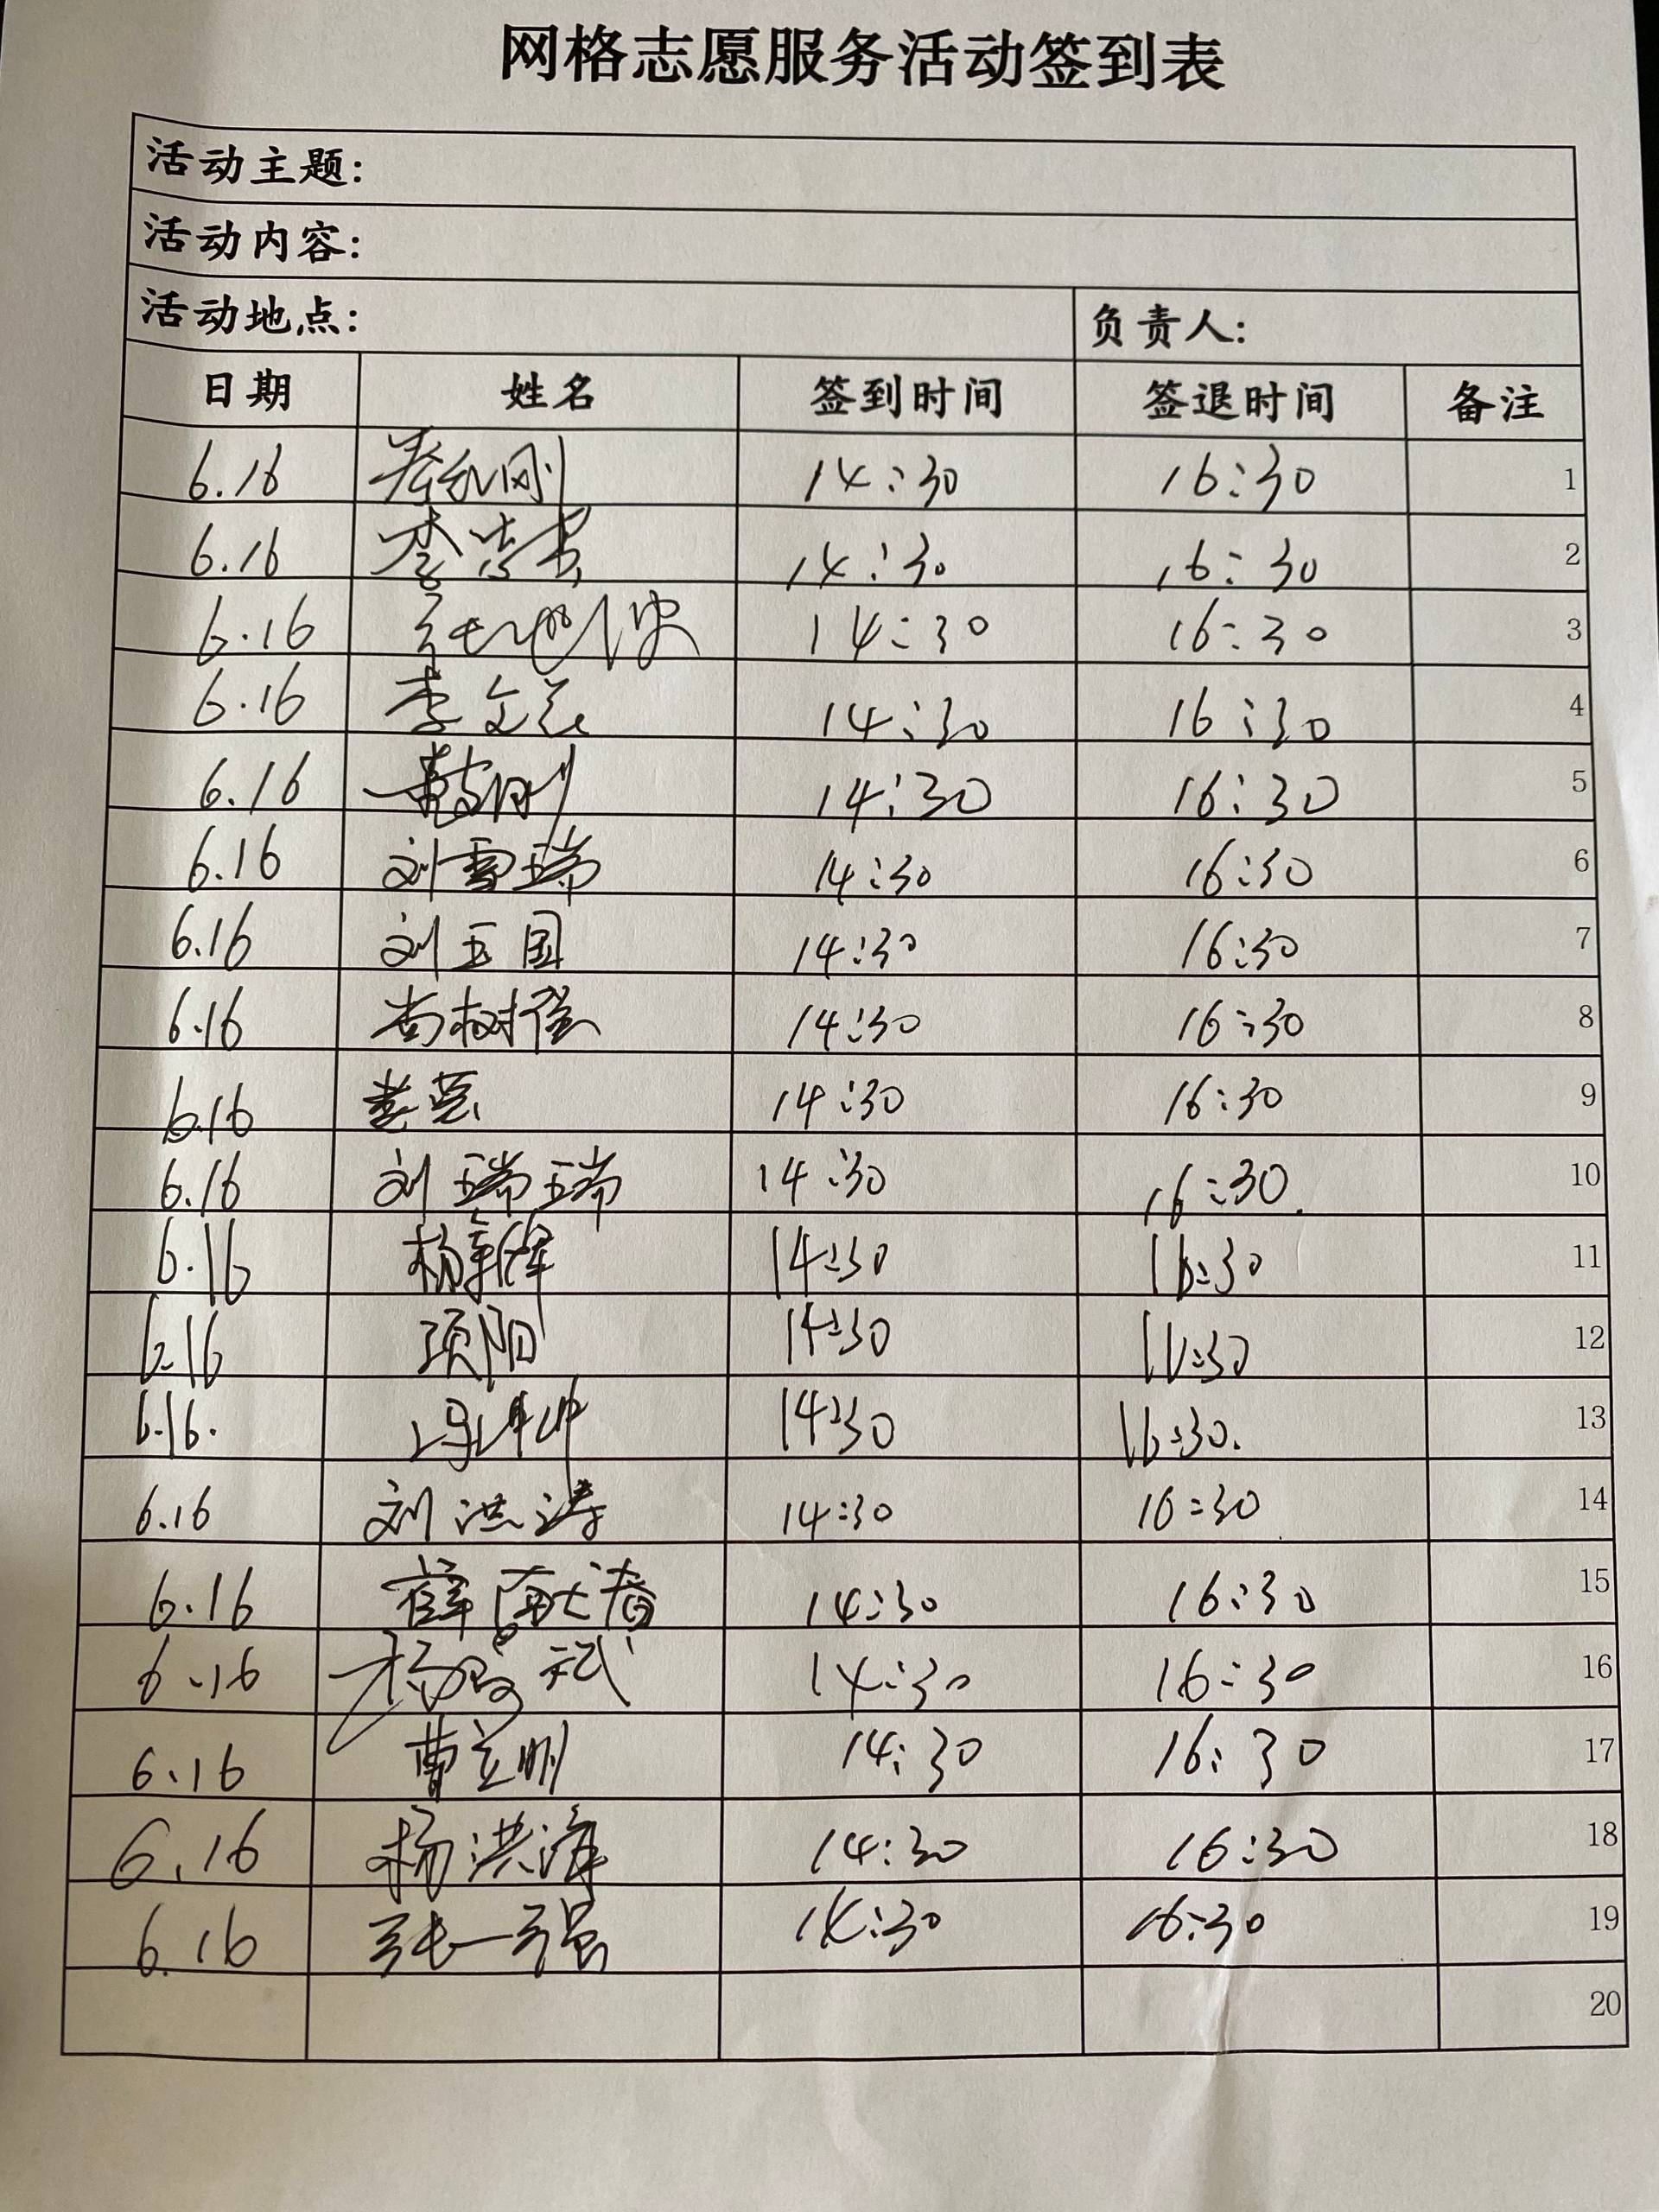 网格志愿服务活动签到表
活动主题:
活动内容:
活动地点: 负责人:
日期 姓名 签到时间 签退时间 备注
6.16 14:30 16:30 1
6.16 李 14:30 16:30 2
6.16 张 14:30 16:30 3
6.16 李文 14:30 16:30 4
6.16 14:30 16:30 5
6.16 刘雪瑞 14:30 16:30 6
6.16 刘玉国 14:30 16:30 7
6.16 尚树 14:30 16:30 8
6.16 14:30 16:30 9
6.16 刘瑞瑞 14:30 16:30. 10
6.16 杨新 14:30 16:30 11
6.16 项阳 14:30 16:30 12
6.16. 14:30 16:30. 13
6.16 刘洪涛 14:30 16:30 14
6.16 薛献春 14:30 16:30 15
6.16 杨 斌 14:30 16:30 16
6.16 曹立明 14:30 16:30 17
6.16 杨洪海 14:30 16:30 18
6.16 张一强 14:30 16:30 19
20